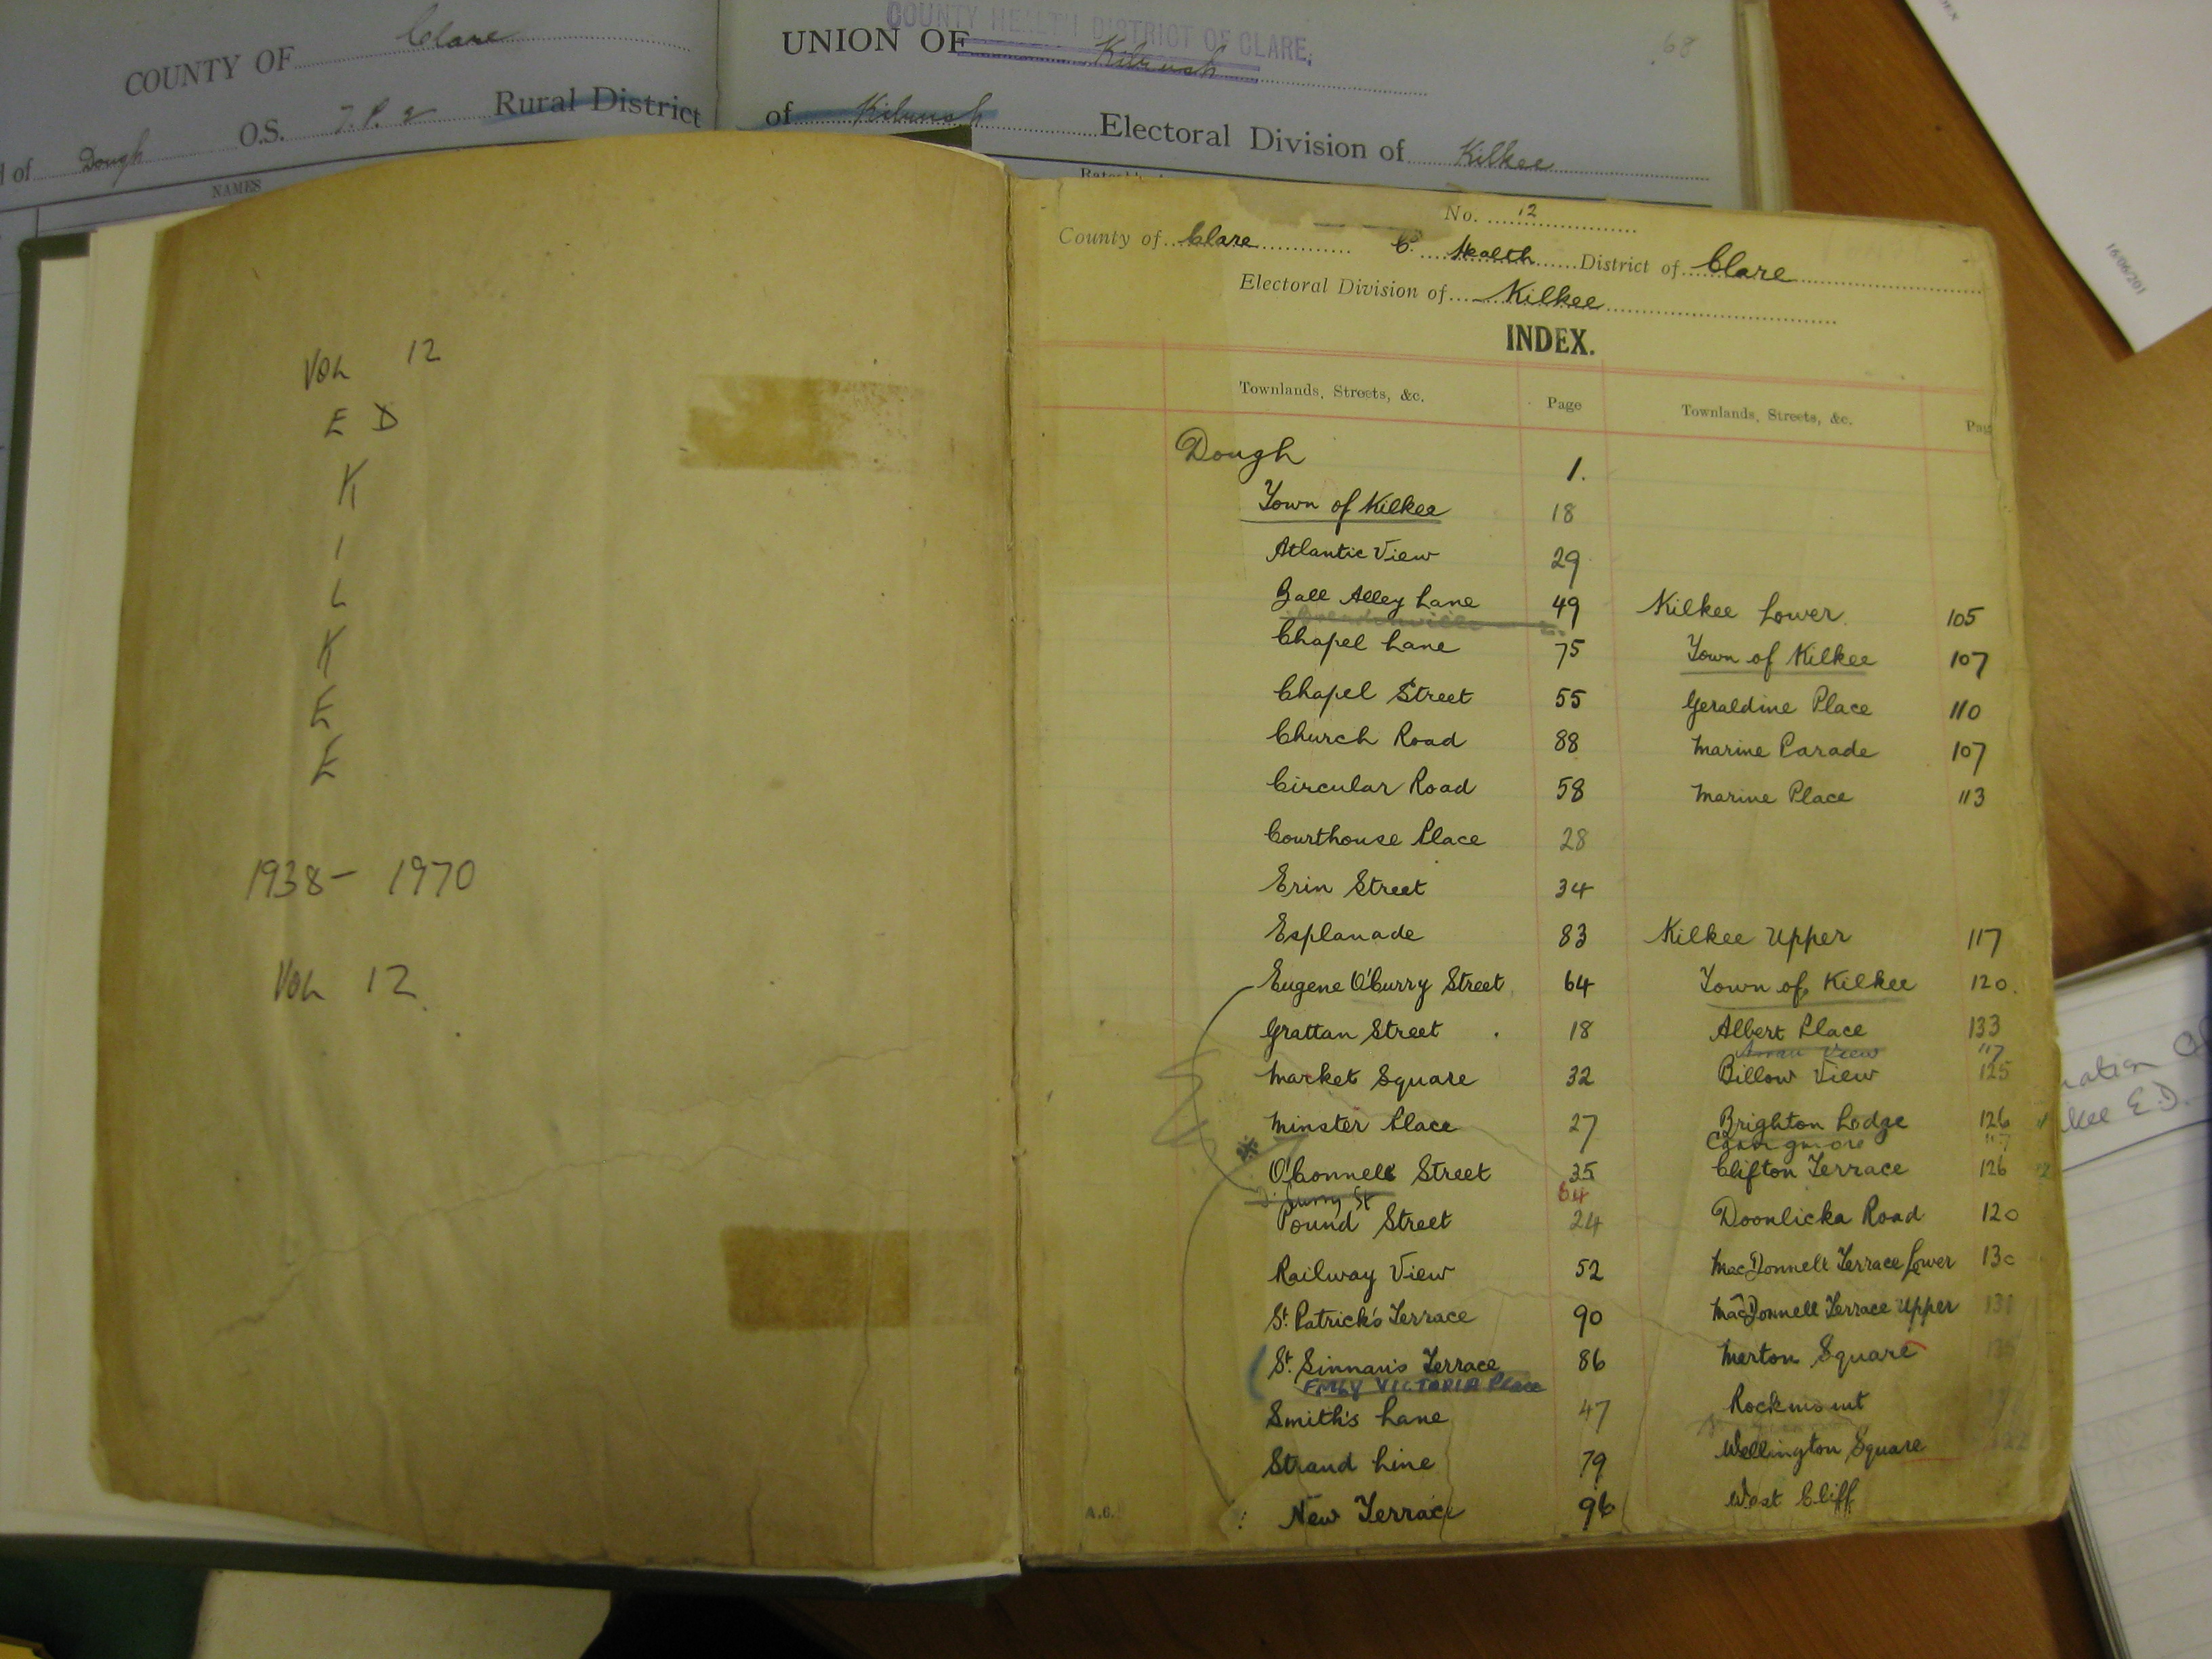 COUNTY OF Clare
O.S. Rural District
of Dough
NAMES
COUNTY HEALTH DISTRICT OF CLARE,
UNION OF Kilrush
68
of Kilrush Electoral Division of Kilkee
VOL 12
E D
K
I
L
K
E
E
1938- 1970
VOL 12
No. 12
County of Clare C. Health District of Clare
Electoral Division of Kilkee
INDEX.
Townlands, Streets, &c. Page Townlands, Streets, &c. Pag
Dough 1.
Town of Kilkee 18
Atlantic View 29
Ball Alley Lane 49 Kilkee Lower 105
Chapel Lane 75 Town of Kilkee 107
Chapel Street 55 Geraldine Place 110
Church Road 88 Marine Parade 107
Circular Road 58 Marine Place 113
Courthouse Place 28
Erin Street 34
Esplanade 83 Kilkee Upper 117
Eugene O'Curry Street 64 Town of Kilkee 120.
Grattan Street 18 Albert Place 133
View 117
Market Square 32 Billow View 125
Minster Place 27 Brighton Lodge 126
117
O'Connell Street 35 Clifton Terrace 126
Curry St 64
Pound Street 24 Doonlicka Road 120
Railway View 52 MacDonnell Terrace Lower 130
St. Patrick's Terrace 90 MacDonnell Terrace Upper 131
St. Sinnan's Terrace 86 Merton Square
FMLY VICTORIA Place
Smith's Lane 47 Rockmount
Strand Line 79 Wellington Square
New Terrace 96 West Cliff
A.C.
16/06/201
kee E.D.